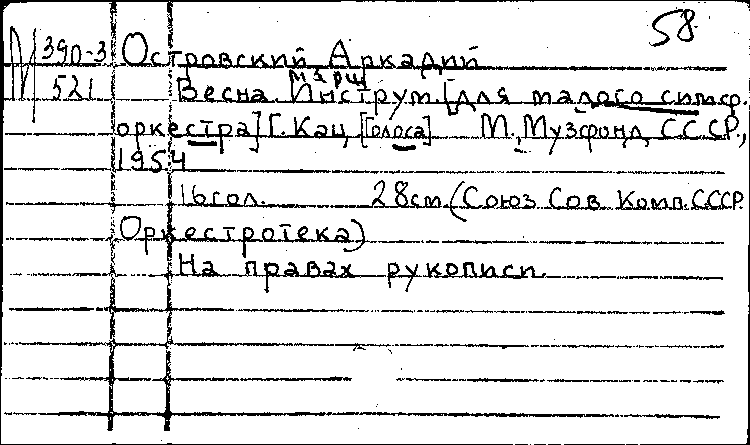 58
М 390-3 Островский Аркадий
521 Весна. Марш. Инструм. [для малого симф.
оркестра] Г. Кац [голоса] М., Музфонд СССР,
1954
16гол. 28см. (Союз Сов. Комп. СССР.
Оркестротека)
На правах рукописи.